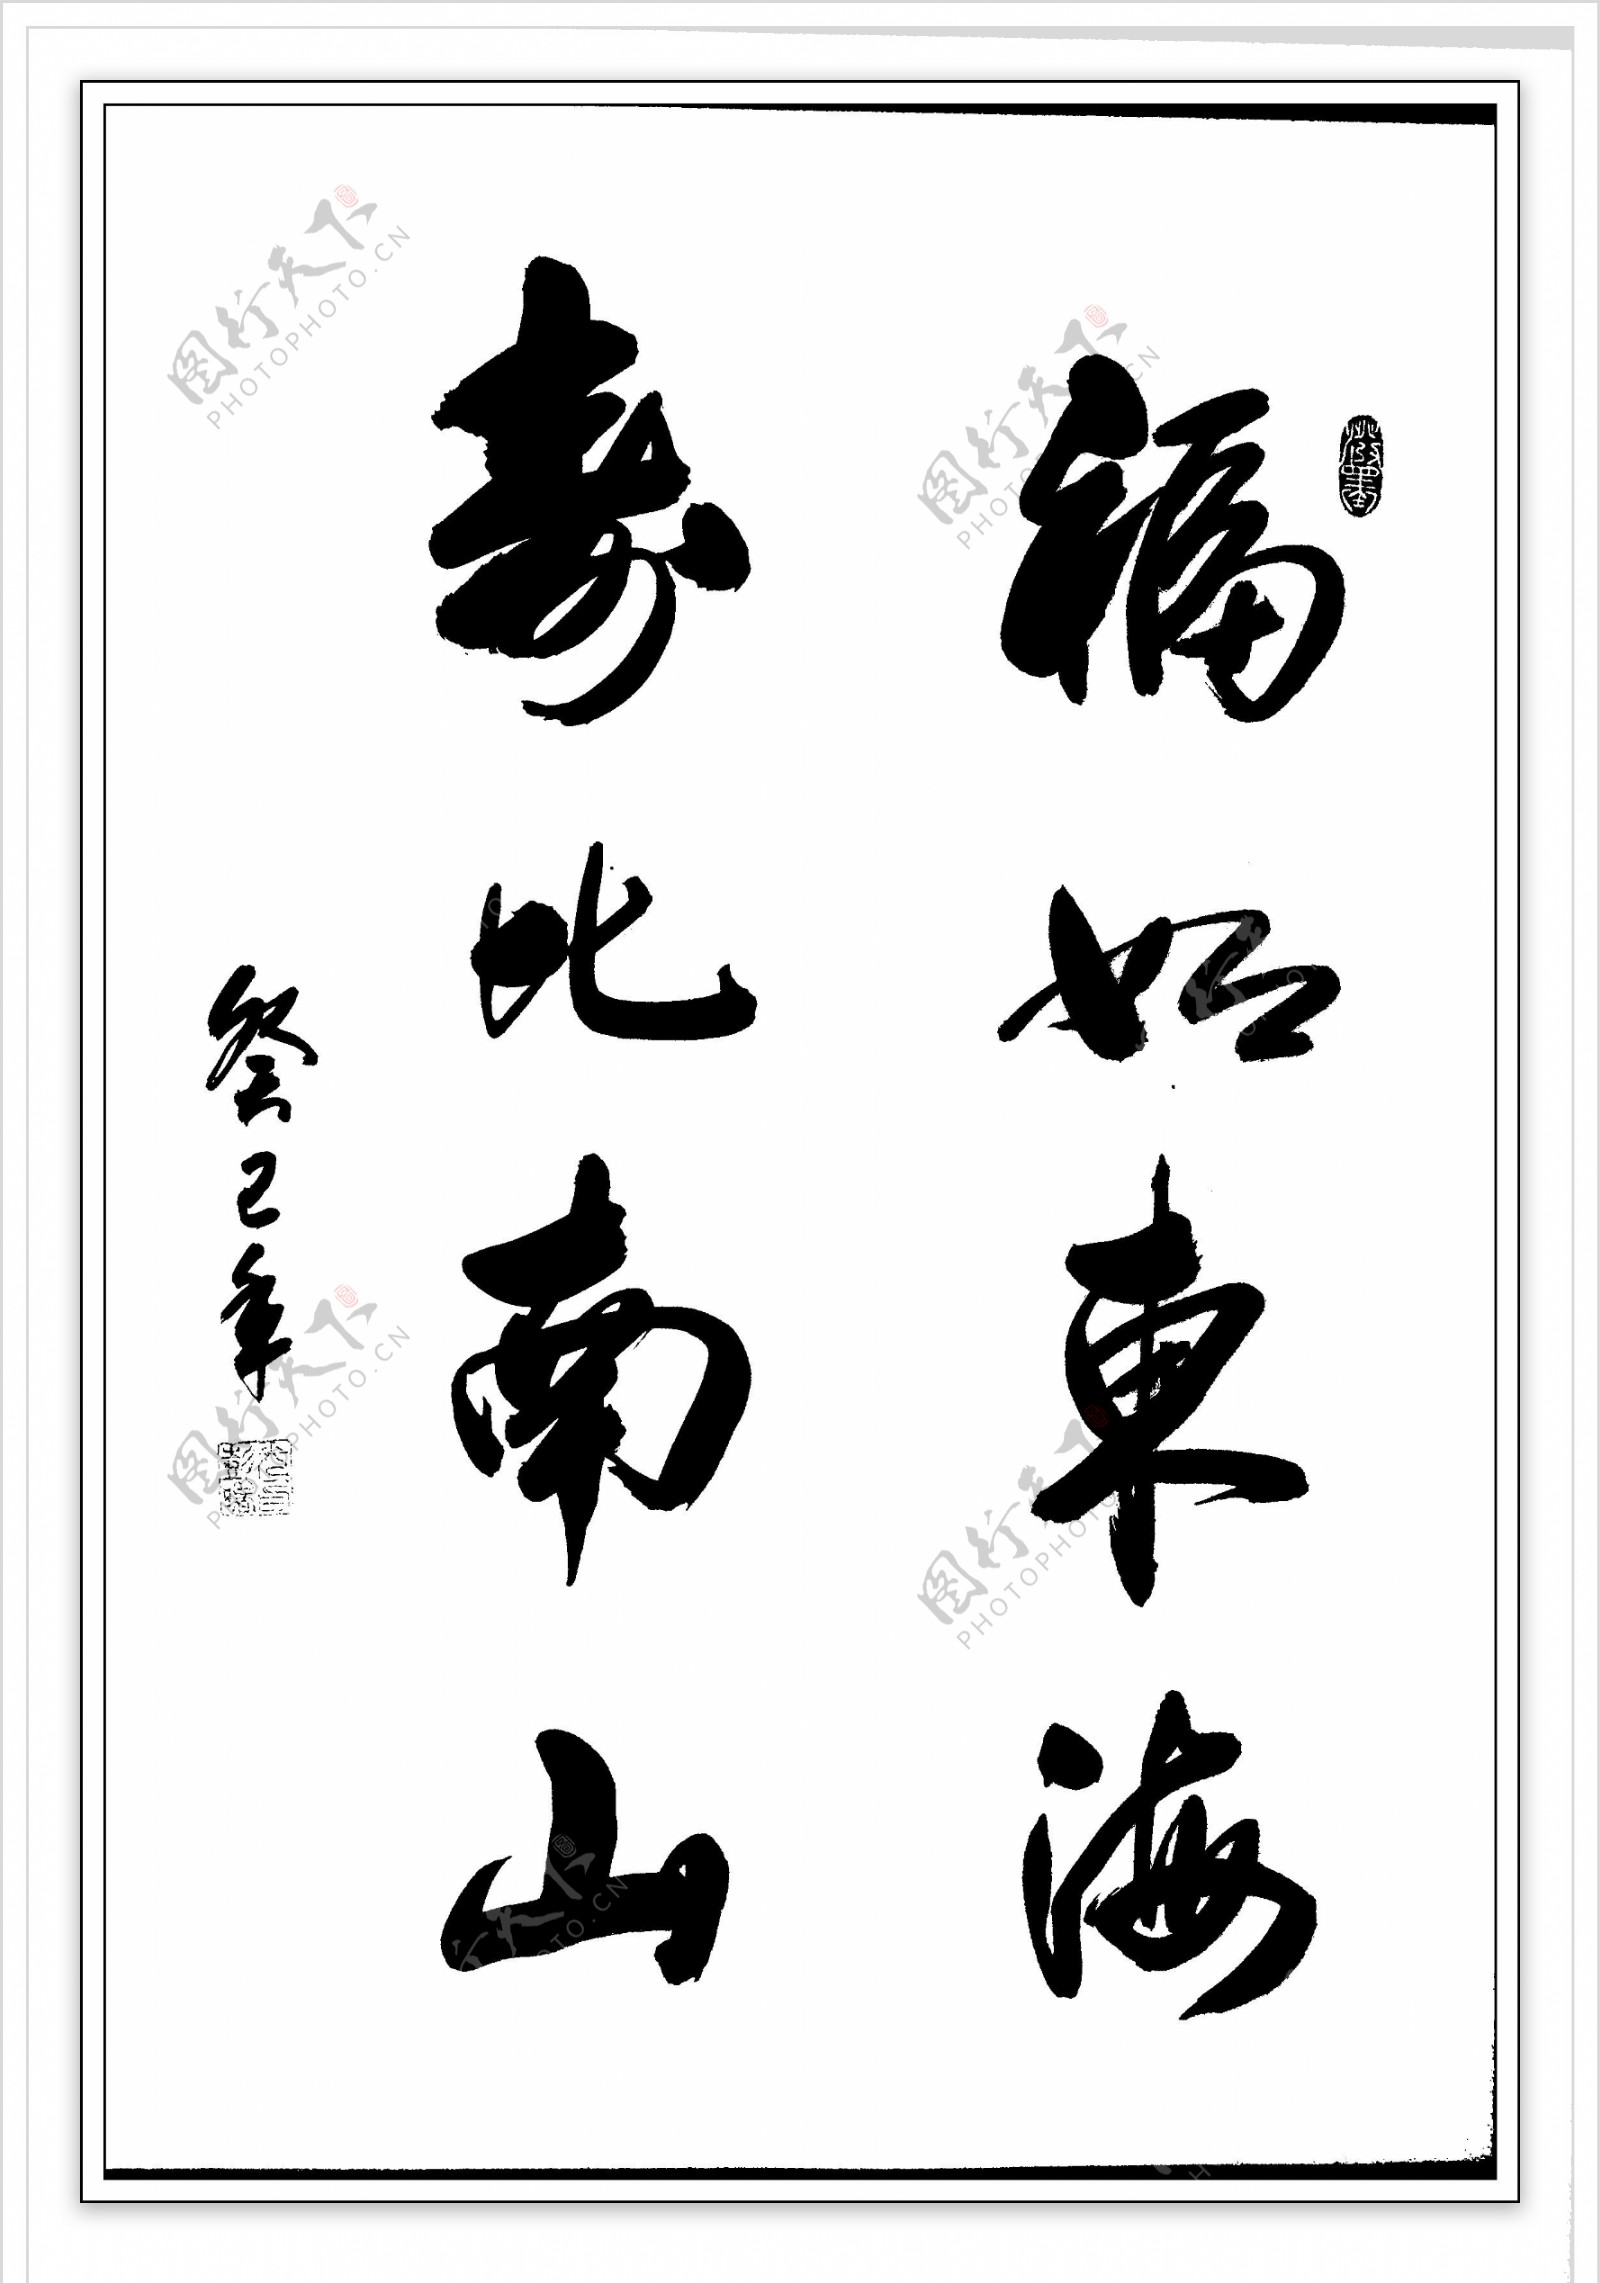 福如東海
壽比南山
癸巳年
图行天下
PHOTOPHOTO.CN
图行天下
PHOTOPHOTO.CN
图行天下
PHOTOPHOTO.CN
图行天下
PHOTOPHOTO.CN